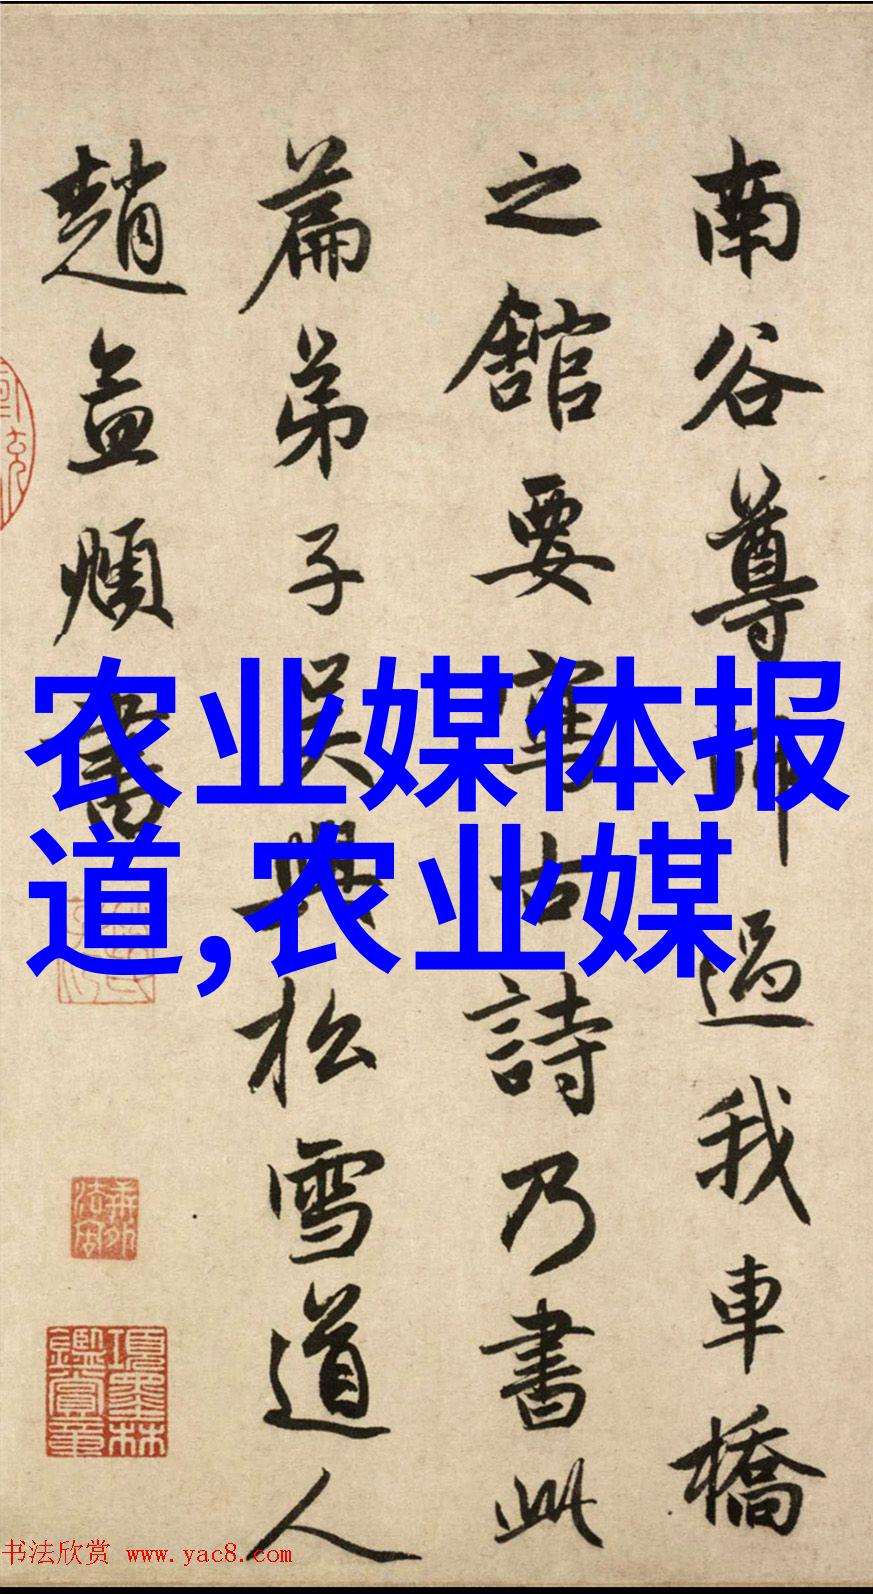 南谷尊師過我車橋
之舘要寫古詩乃書此
篇弟子吳興松雪道人
趙孟頫書
农业媒体报
道,农业媒
項墨林鑑賞章
书法欣赏 www.yac8.com